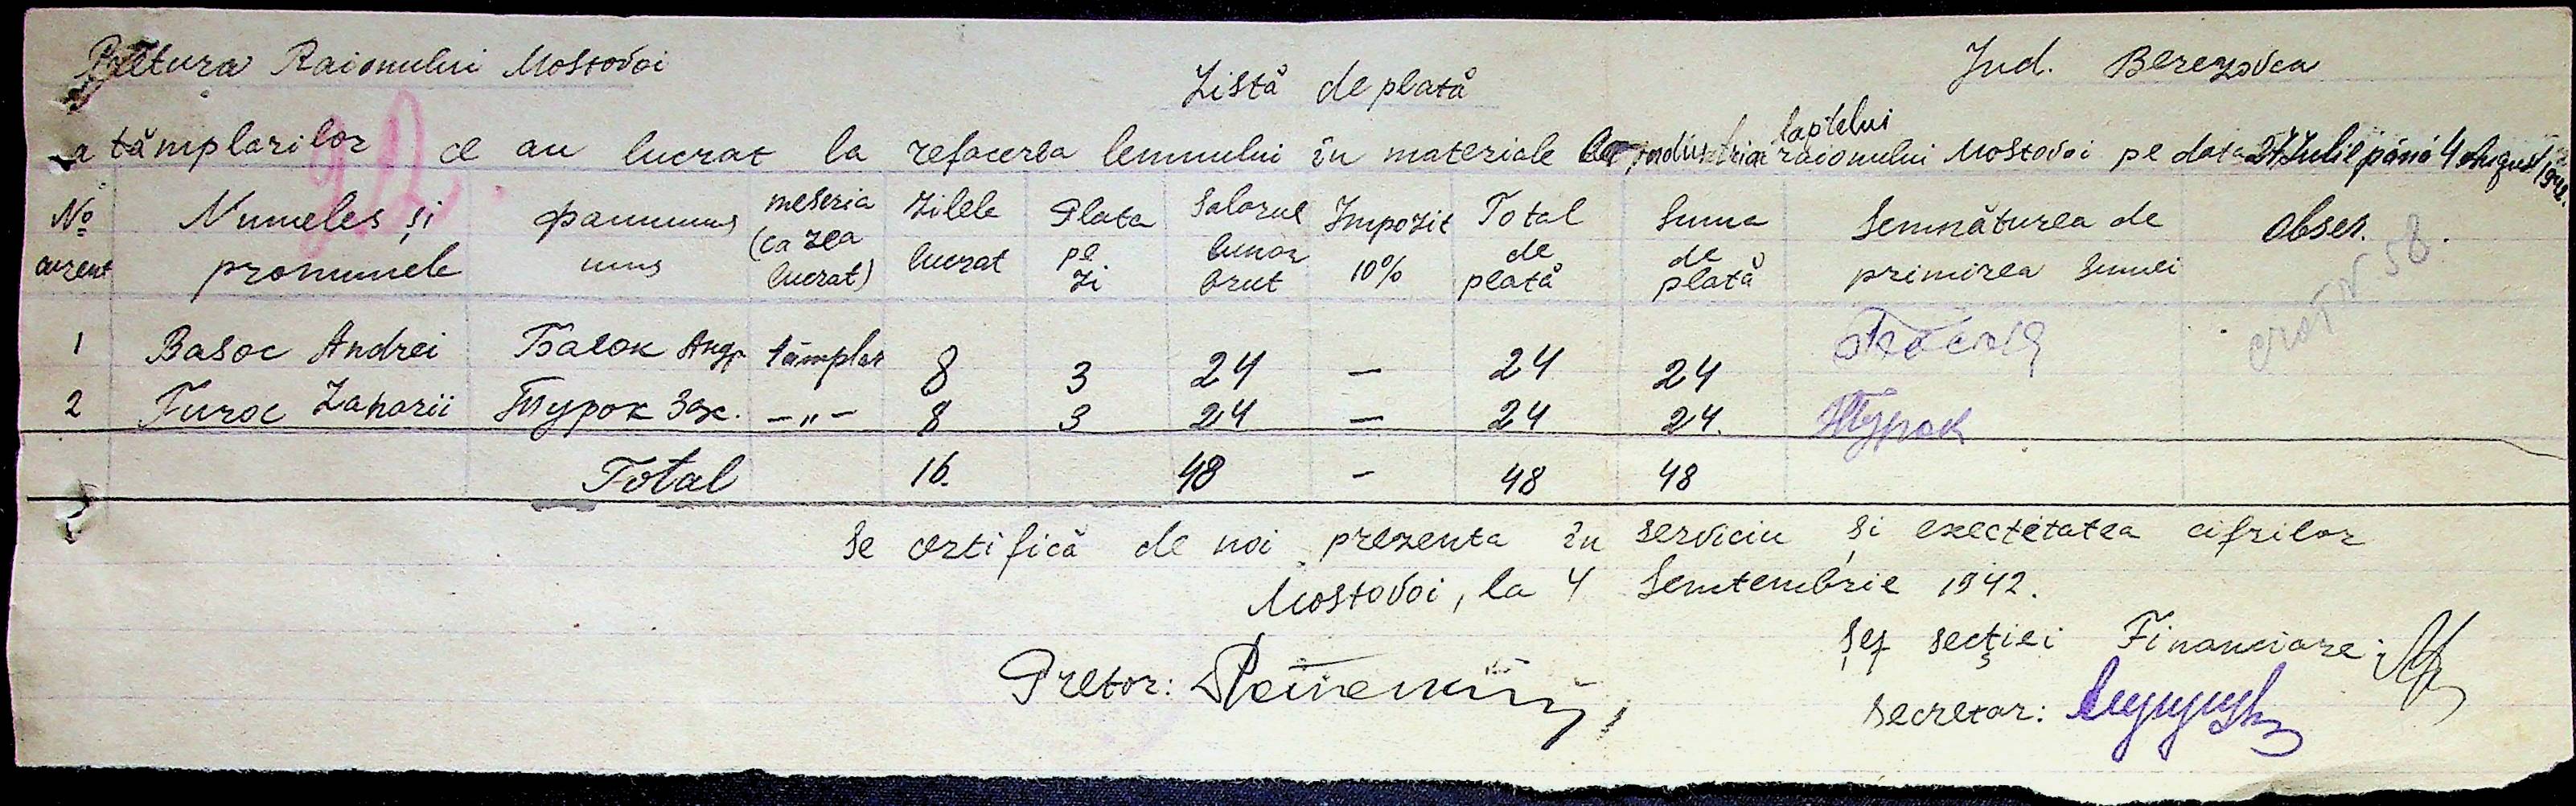 Pretura Raionului Mostovoi
Jud. Berezovca
Listă de plată
a tâmplarilor ce au lucrat la refacerea lemnului în materiale industria laptelui raionului Mostovoi pe data 27 Iulie până 4 August 1942.
22
№ curent Numeles și pronumele фаминия meseria (ca zea lucrat) Zilele lucrat Plata pe zi Salarul lunar brut Impozit 10% Total de plată Suma de plată Semnăturea de primirea sumei obser.
1 Basoc Andrei Басок Андр tâmplar 8 3 24 – 24 24
2 Turoc Zaharii Турок Зах. –„– 8 3 24 – 24 24. Турок
Total 16. 48 – 48 48
58
Se certifică de noi prezenta în serviciu și exectetatea cifrilor
Mostovoi, la 4 Semtembrie 1942.
Șef secției Financiare:
Pretor:
Secretar: